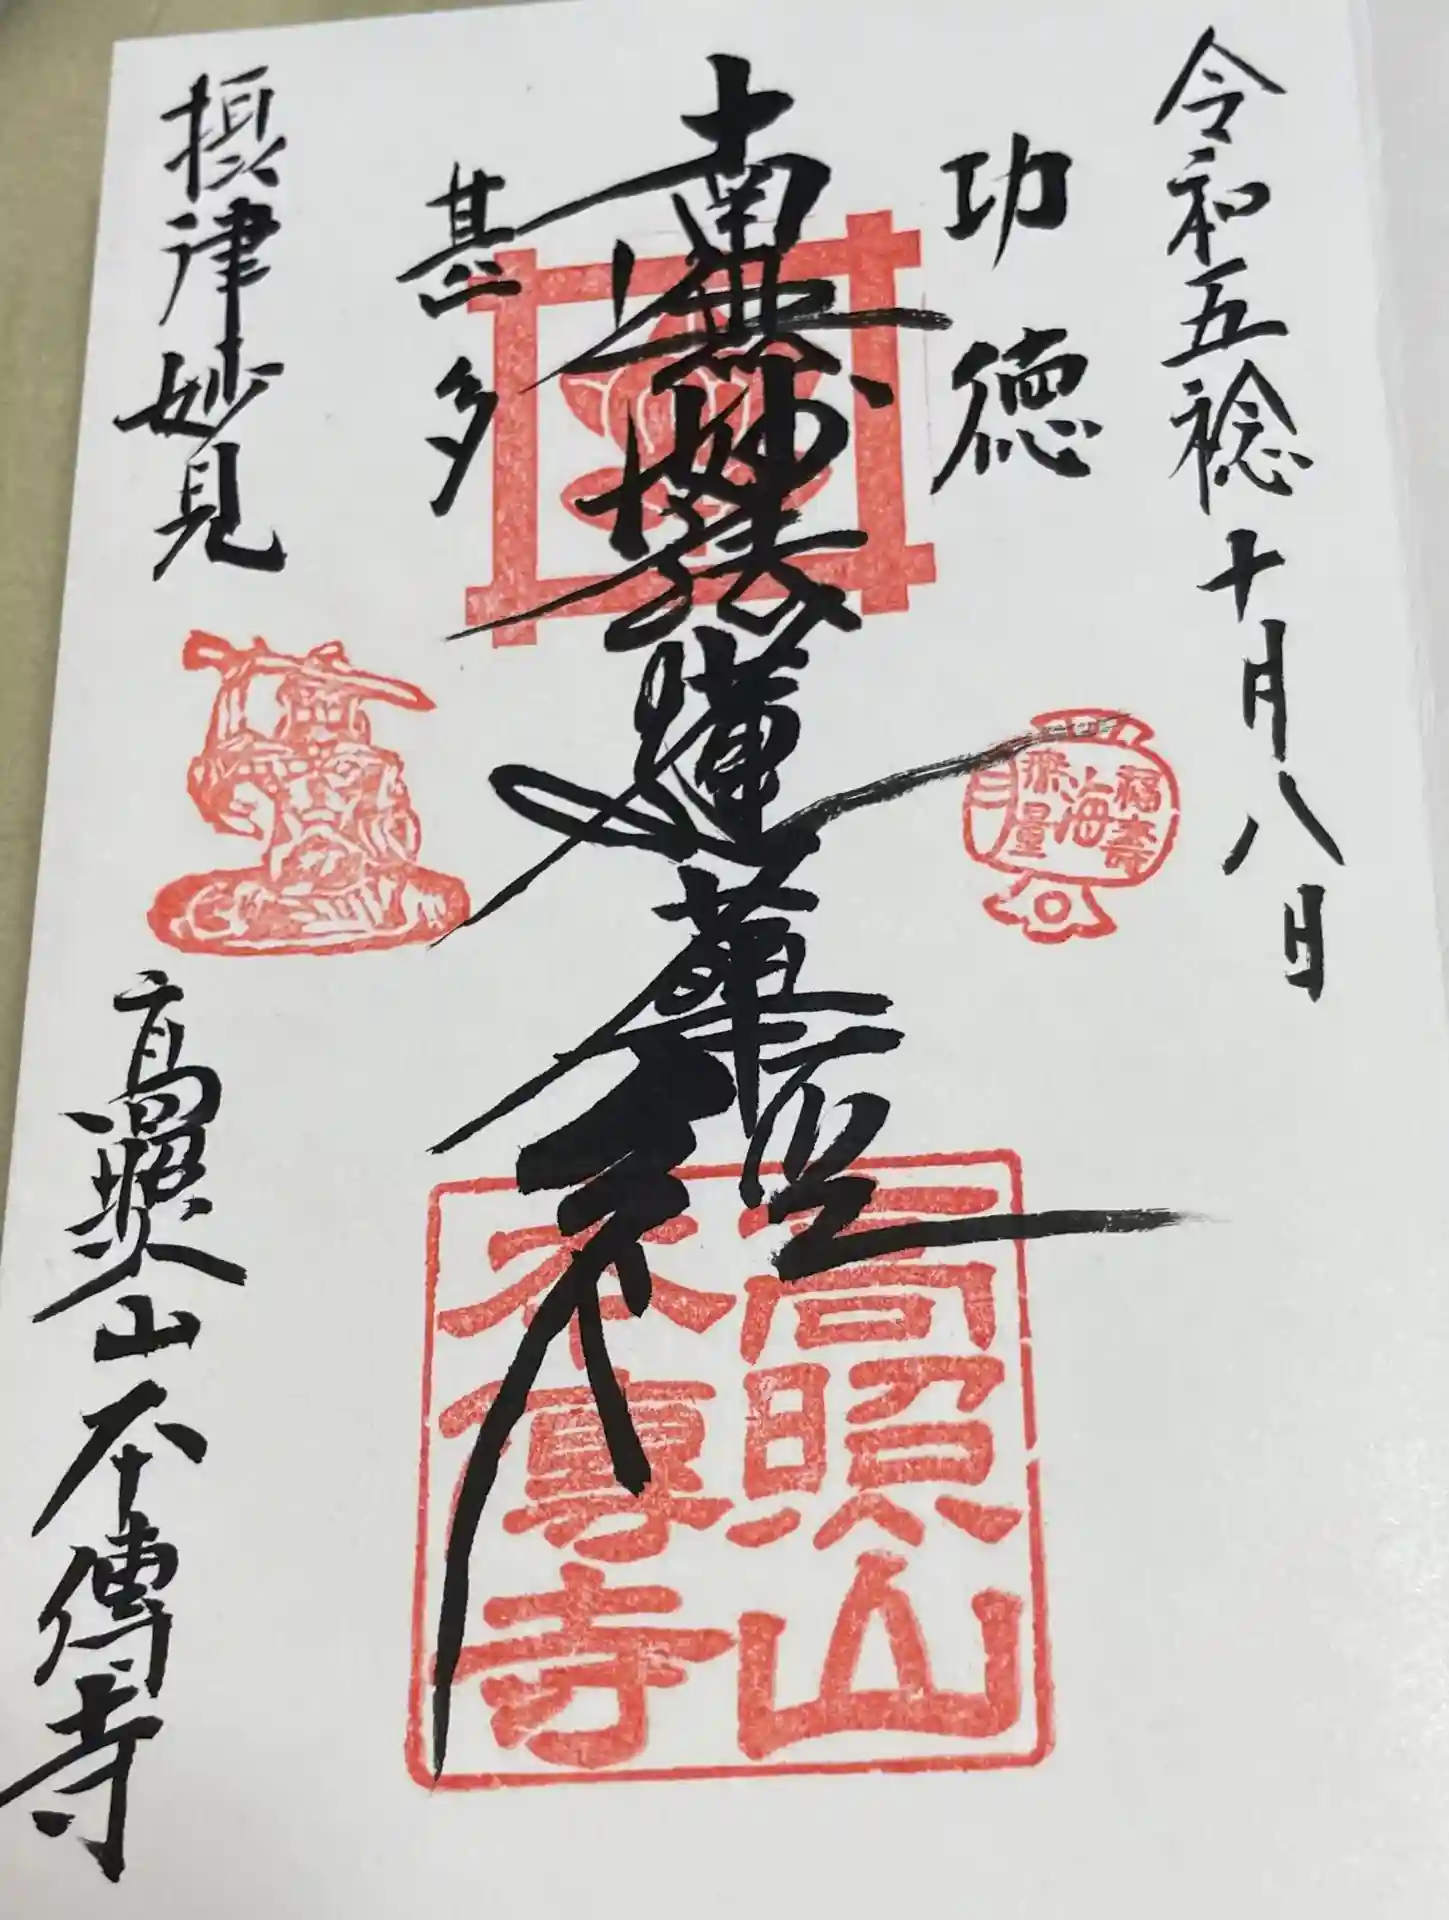 令和五稔十月八日
功德
福壽
海
無量
南無妙法蓮華経
高照山
本傳寺
甚多
摂津妙見
高照山本傳寺